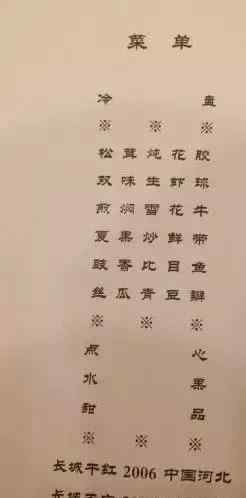 菜 单
冷 盘
※ ※ ※
松 茸 炖 花 胶
双 味 生 虾 球
煎 焖 雪 花 牛
夏 果 炒 鲜 带
豉 香 比 目 鱼
丝 瓜 青 豆 瓣
※ ※ ※
点 心
水 果
甜 品
※ ※
长城干红 2006 中国河北